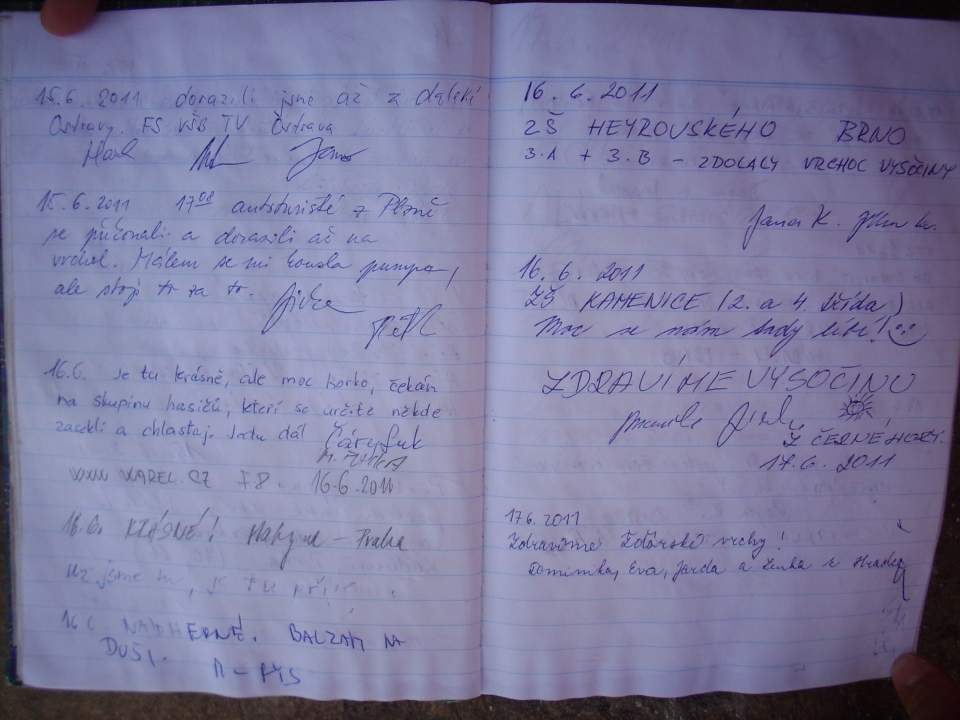 15.6. 2011 dorazili jsme až z daleké
Ostravy. FS VŠB TV Ostrava
15.6. 2011 17 08 autoturisté z Plzně
se přičonali a dorazili až na
vrchol. Málem se mi kousla pumpa,
ale stojí to za to. Jirka
16.6. Je tu krásně, ale moc horko, čekám
na skupinu hasičů, kteří se určitě někde
zasekli a chlastaj. Jedu dál Čáryfuk
16.6.2011
16.6. KRÁSNÉ! – Praha
Už jsme tu, je tu příje
16.6. NÁDHERNÉ. BALZÁM NA
DUŠI.
16.6.2011
ZŠ HEYROVSKÉHO BRNO
3.A + 3.B – ZDOLALY VRCHOL VYSOČINY
Jana K.
16.6.2011
ZŠ KAMENICE (2. a 4. třída)
Moc se nám tady líbí!
ZDRAVÍME VYSOČINU
Z ČERNÉ HORY.
17.6.2011
17.6.2011
Zdravíme Žďárské vrchy!
Dominika, Eva, Jarda a Lenka z